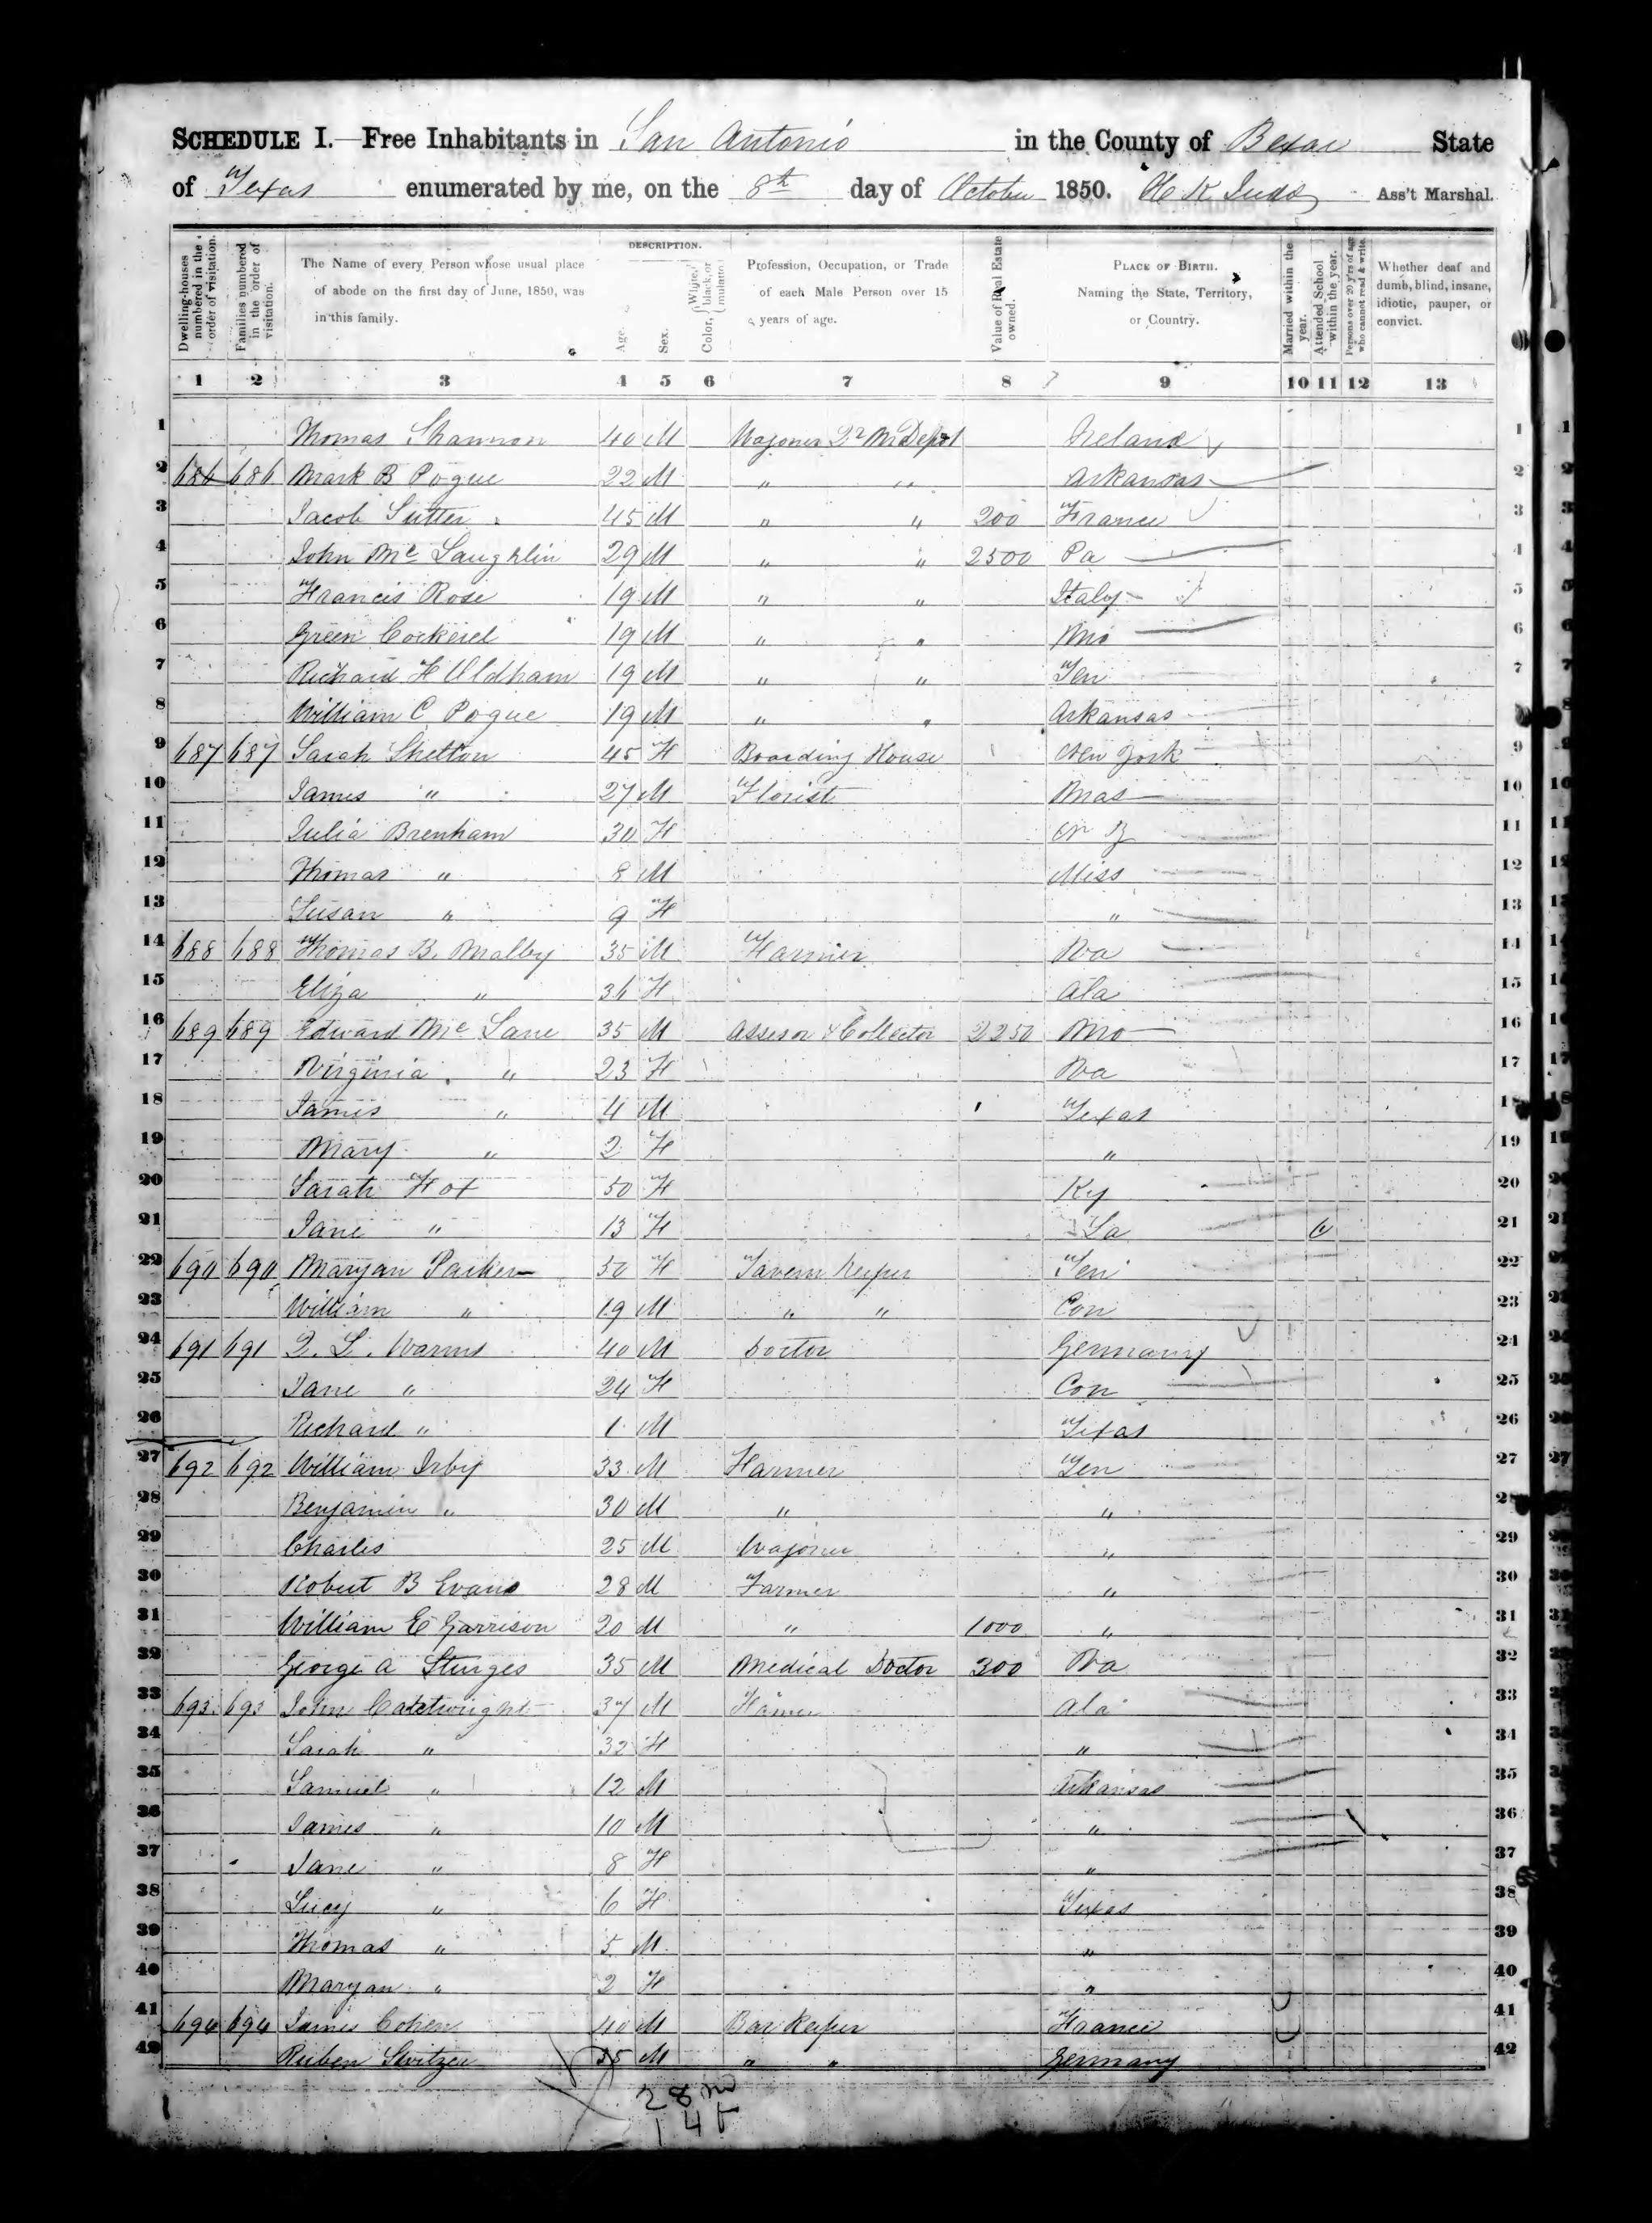 SCHEDULE I.—Free Inhabitants in San Antonio in the County of Bexar State
of Texas enumerated by me, on the 8th day of October 1850. Ass't Marshal.
Dwelling-houses numbered in the order of visitation.
Families numbered in the order of visitation.
The Name of every Person whose usual place of abode on the first day of June, 1850, was in this family.
DESCRIPTION.
Age.
Sex.
Color, {White, black, or mulatto.
Profession, Occupation, or Trade of each Male Person over 15 years of age.
Value of Real Estate owned.
PLACE OF BIRTH. Naming the State, Territory, or Country.
Married within the year.
Attended School within the year.
Persons over 20 y'rs of age who cannot read & write.
Whether deaf and dumb, blind, insane, idiotic, pauper, or convict.
1 2 3 4 5 6 7 8 9 10 11 12 13
1 Thomas Shannon 40 M Wagoner Qr M Depot Ireland 1 1
2 686 686 Mark B Pogue 22 M " " Arkansas 2 2
3 Jacob Sutter 45 M " " 200 France 3 3
4 John Mc Laughlin 29 M " " 2500 Pa 4 4
5 Francis Rose 19 M " " Italy 5 5
6 Green Cockerel 19 M " " Mo 6 6
7 Richard H Oldham 19 M " " Ten 7 7
8 William C Pogue 19 M " " Arkansas 8 8
9 687 687 Sarah Shelton 45 F Boarding House New York 9 9
10 James " 27 M Florist Mas 10 10
11 Julia Brenham 30 F N Y 11 11
12 Thomas " 8 M Miss 12 12
13 Susan " 9 F " 13 13
14 688 688 Thomas B. Malby 35 M Farmer Va 14 14
15 Eliza " 36 F Ala 15 15
16 689 689 Edward Mc Lane 35 M Assesor & Collector 2250 Mo 16 16
17 Virginia " 23 F Va 17 17
18 James " 4 M Texas 18 18
19 Mary " 2 F " 19 19
20 Sarah Fox 50 F Ky 20 20
21 Jane " 13 F La 21 21
22 690 690 Maryan Parker 50 F Tavern Keeper Ten 22 22
23 William " 19 M " " Con 23 23
24 691 691 Warms 40 M Doctor Germany 24 24
25 Jane " 24 F Con 25 25
26 Richard " 1 M Texas 26 26
27 692 692 William Irby 33 M Farmer Ten 27 27
28 Benjamin " 30 M " " 28 28
29 Charles 25 M Wagoner " 29 29
30 Robert B Evans 28 M Farmer " 30 30
31 William E Garrison 20 M " 1000 " 31 31
32 George A Sturges 35 M Medical Doctor 300 Va 32 32
33 693 693 John Cartwright 37 M Farmer Ala 33 33
34 Sarah " 32 F " 34 34
35 Samuel " 12 M Arkansas 35 35
36 James " 10 M " 36 36
37 Jane " 8 F " 37 37
38 Lucy " 6 F Texas 38 38
39 Thomas " 5 M " 39 39
40 Maryan " 2 F " 40 40
41 694 694 James Cohen 40 M Bar Keeper France 41 41
42 Ruben Switzer M " " Germany 42 42
28 m
14 f